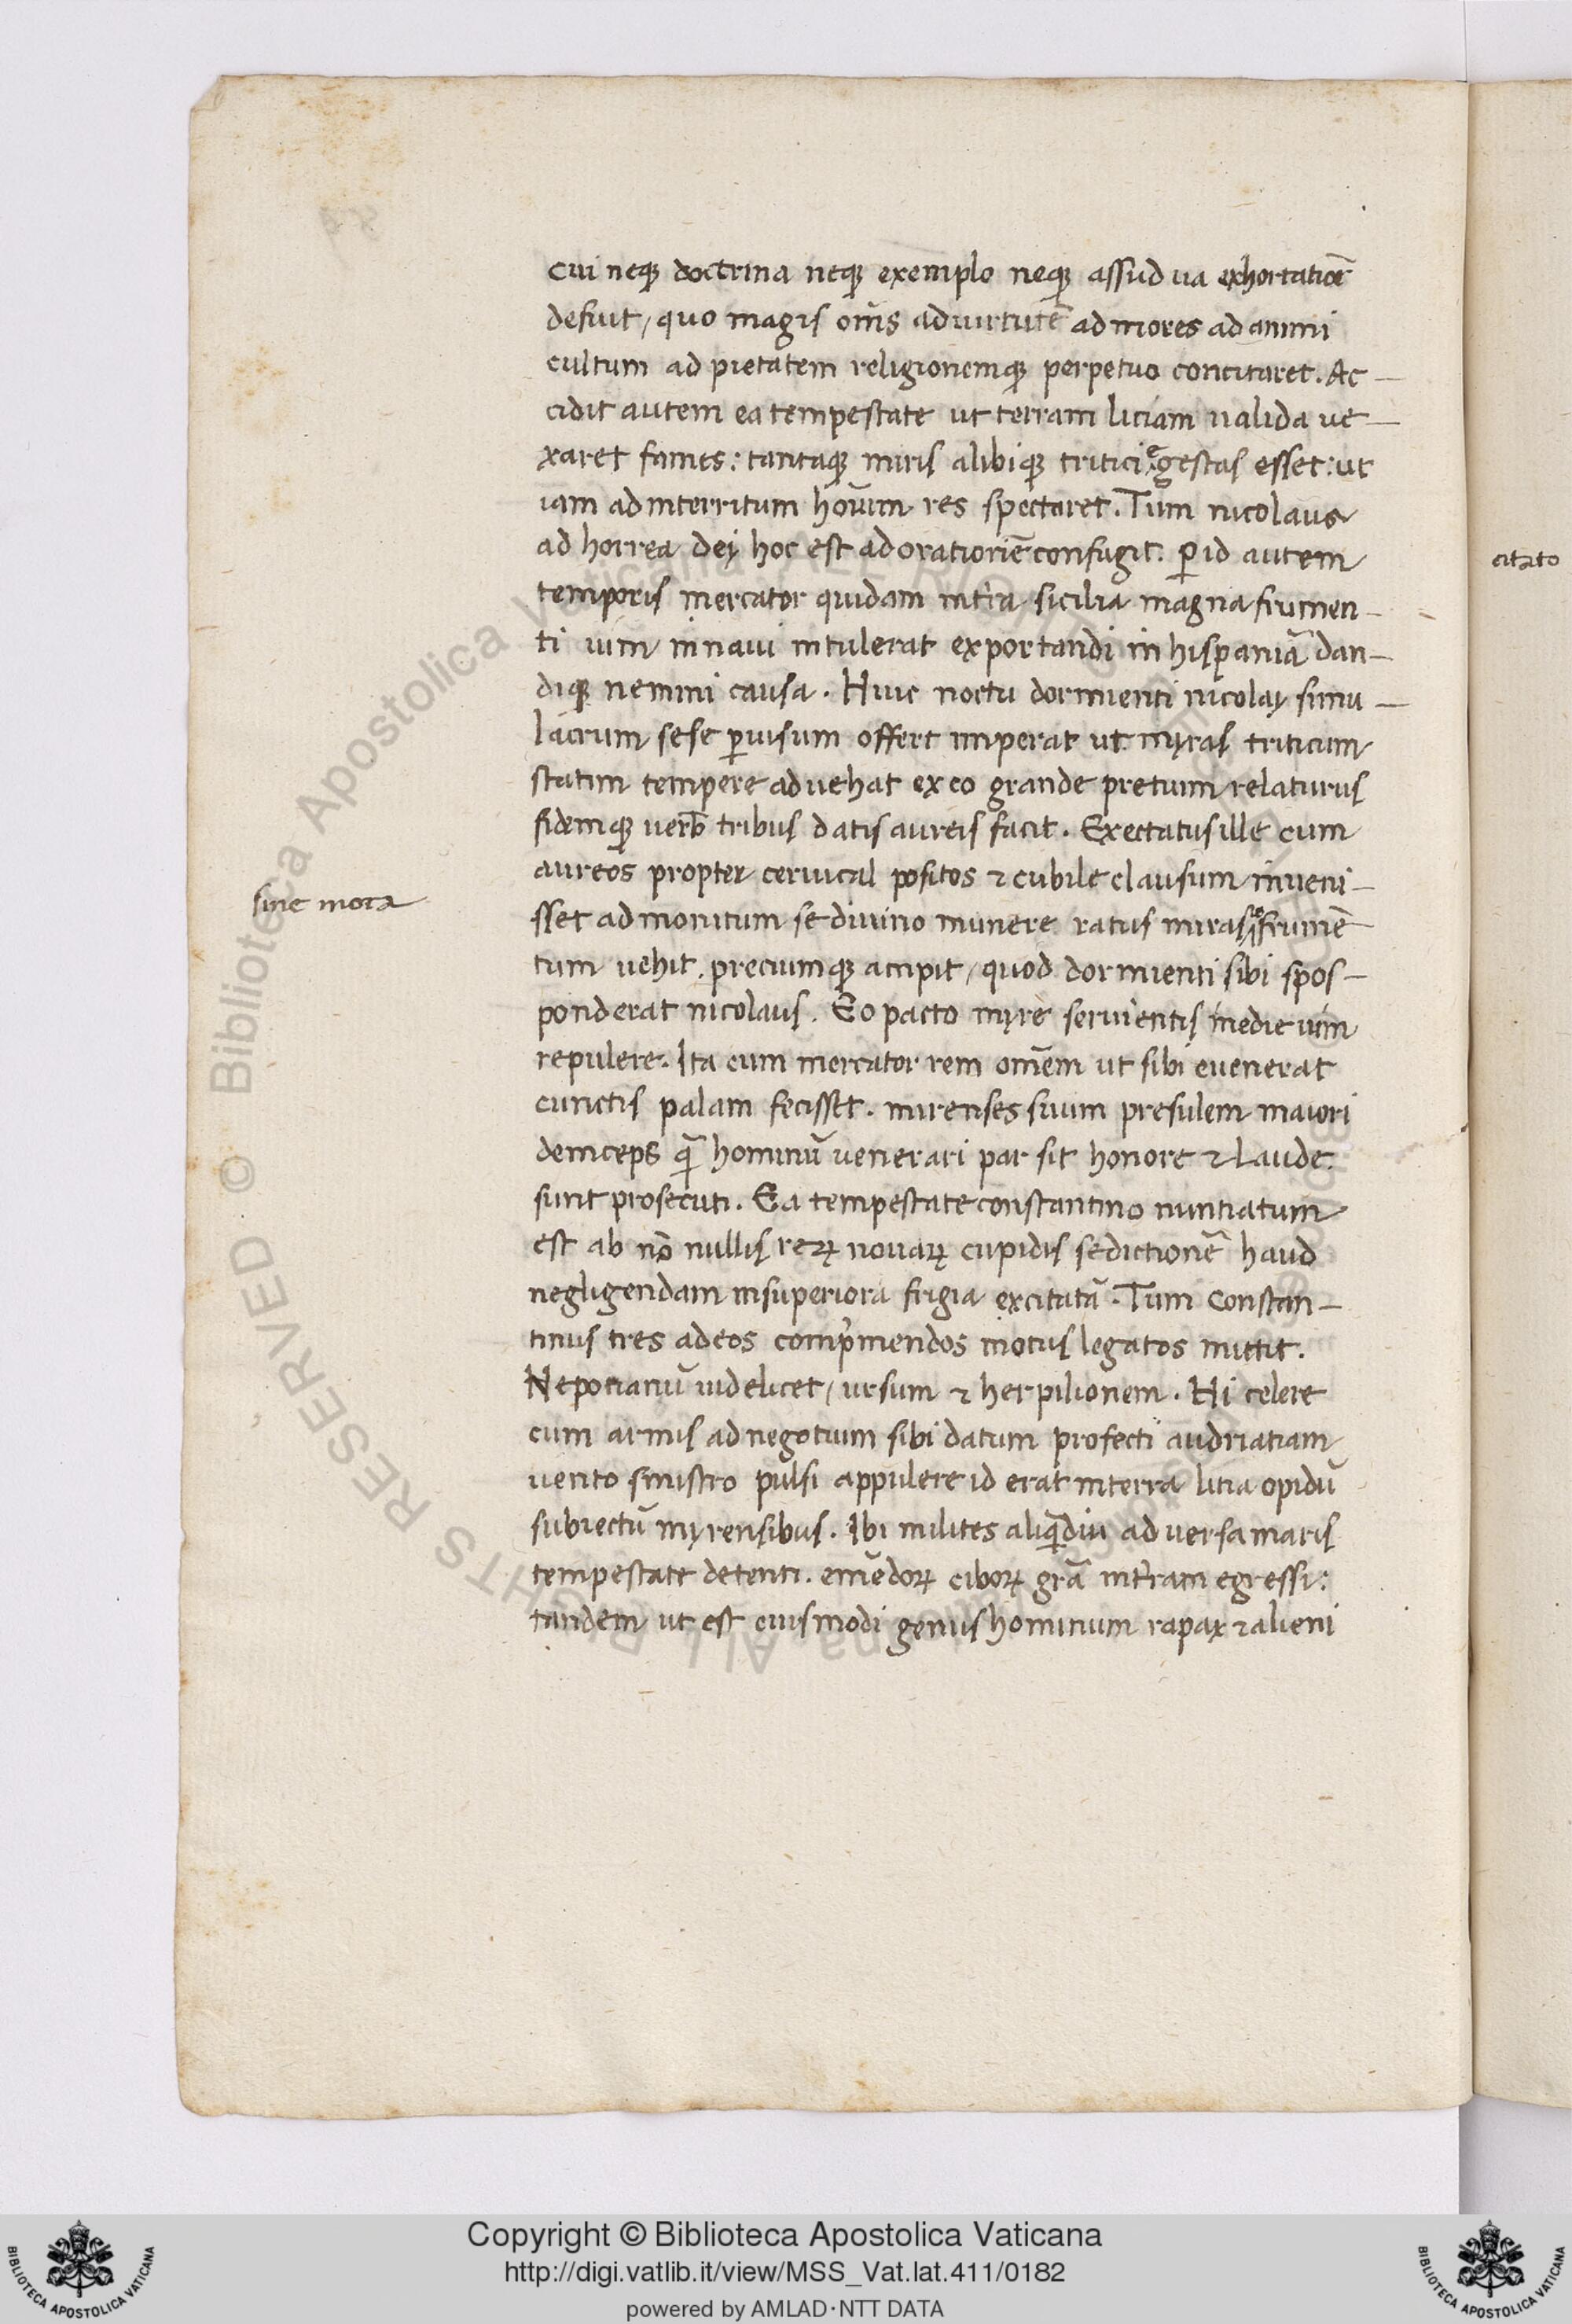 cui neqꝫ doctrina neqꝫ exemplo neqꝫ assudua exhortatiōe
defuit / quo magis om̄s ad uirtutē ad mores ad animi
cultum ad pietatem religionemqꝫ perpetuo concitaret. Ac-
cidit autem ea tempestate ut terram liciam ualida ue-
xaret fames: tantaqꝫ miris alibiqꝫ tritici egestas esset: ut
iam ad interritum hoīum res spectaret. Tum nicolaus
ad horrea dei hoc est ad orationē confugit. ꝑ id autem
temporis mercator quidam int̄ra sicilia magna frumen-
ti uim in naui intulerat exportandi in hispaniā dan-
diqꝫ nemini causa. Huic noctu dormienti nicolai simu-
lacrum sese ꝑ uisum offert imperat ut myras triticum
statim tempere aduehat ex eo grande pretium relaturus
fidemqꝫ uerb̄ tribus datis aureis facit. Exectatus ille cum
aureos propter ceruical positos ⁊ cubile clausum inueni-
sset admonitum se diuino munere ratus miras frumē
sine mora
tum uehit. preciumqꝫ accipit / quod dormienti sibi spos-
ponderat nicolaus. Eo pacto myre seruientis inedie uim
repulere. Ita cum mercator rem om̄em ut sibi euenerat
cunctis palam fecisset. mirenses suum presulem maiori
deinceps q̄ hominū uenerari par sit honore ⁊ laude
sunt prosecuti. Ea tempestate constantino nuntiatum
est ab nō nullis reꝝ nouaꝝ cupidis sedictionē haud
negligendam in superiora frigia excitatā. Tum Constan-
tinus tres ad eos comp̄mendos motus legatos mittit.
Nepotianū uidelicet / ursum ⁊ herpilionem. Hi celere
cum armis ad negotium sibi datum profecti audriatiam
uento sinistro pulsi appulere id erat in terra litia opidū
subiectū myrensibus. Ibi milites aliq̄diu aduersa maris
tempestate detenti. emēdoꝝ ciboꝝ grā int̄ram egressi:
tandem ut est cuiusmodi genus hominum rapax ⁊ alieni
citato
Copyright © Biblioteca Apostolica Vaticana
http://digi.vatlib.it/view/MSS_Vat.lat.411/0182
powered by AMLAD·NTT DATA